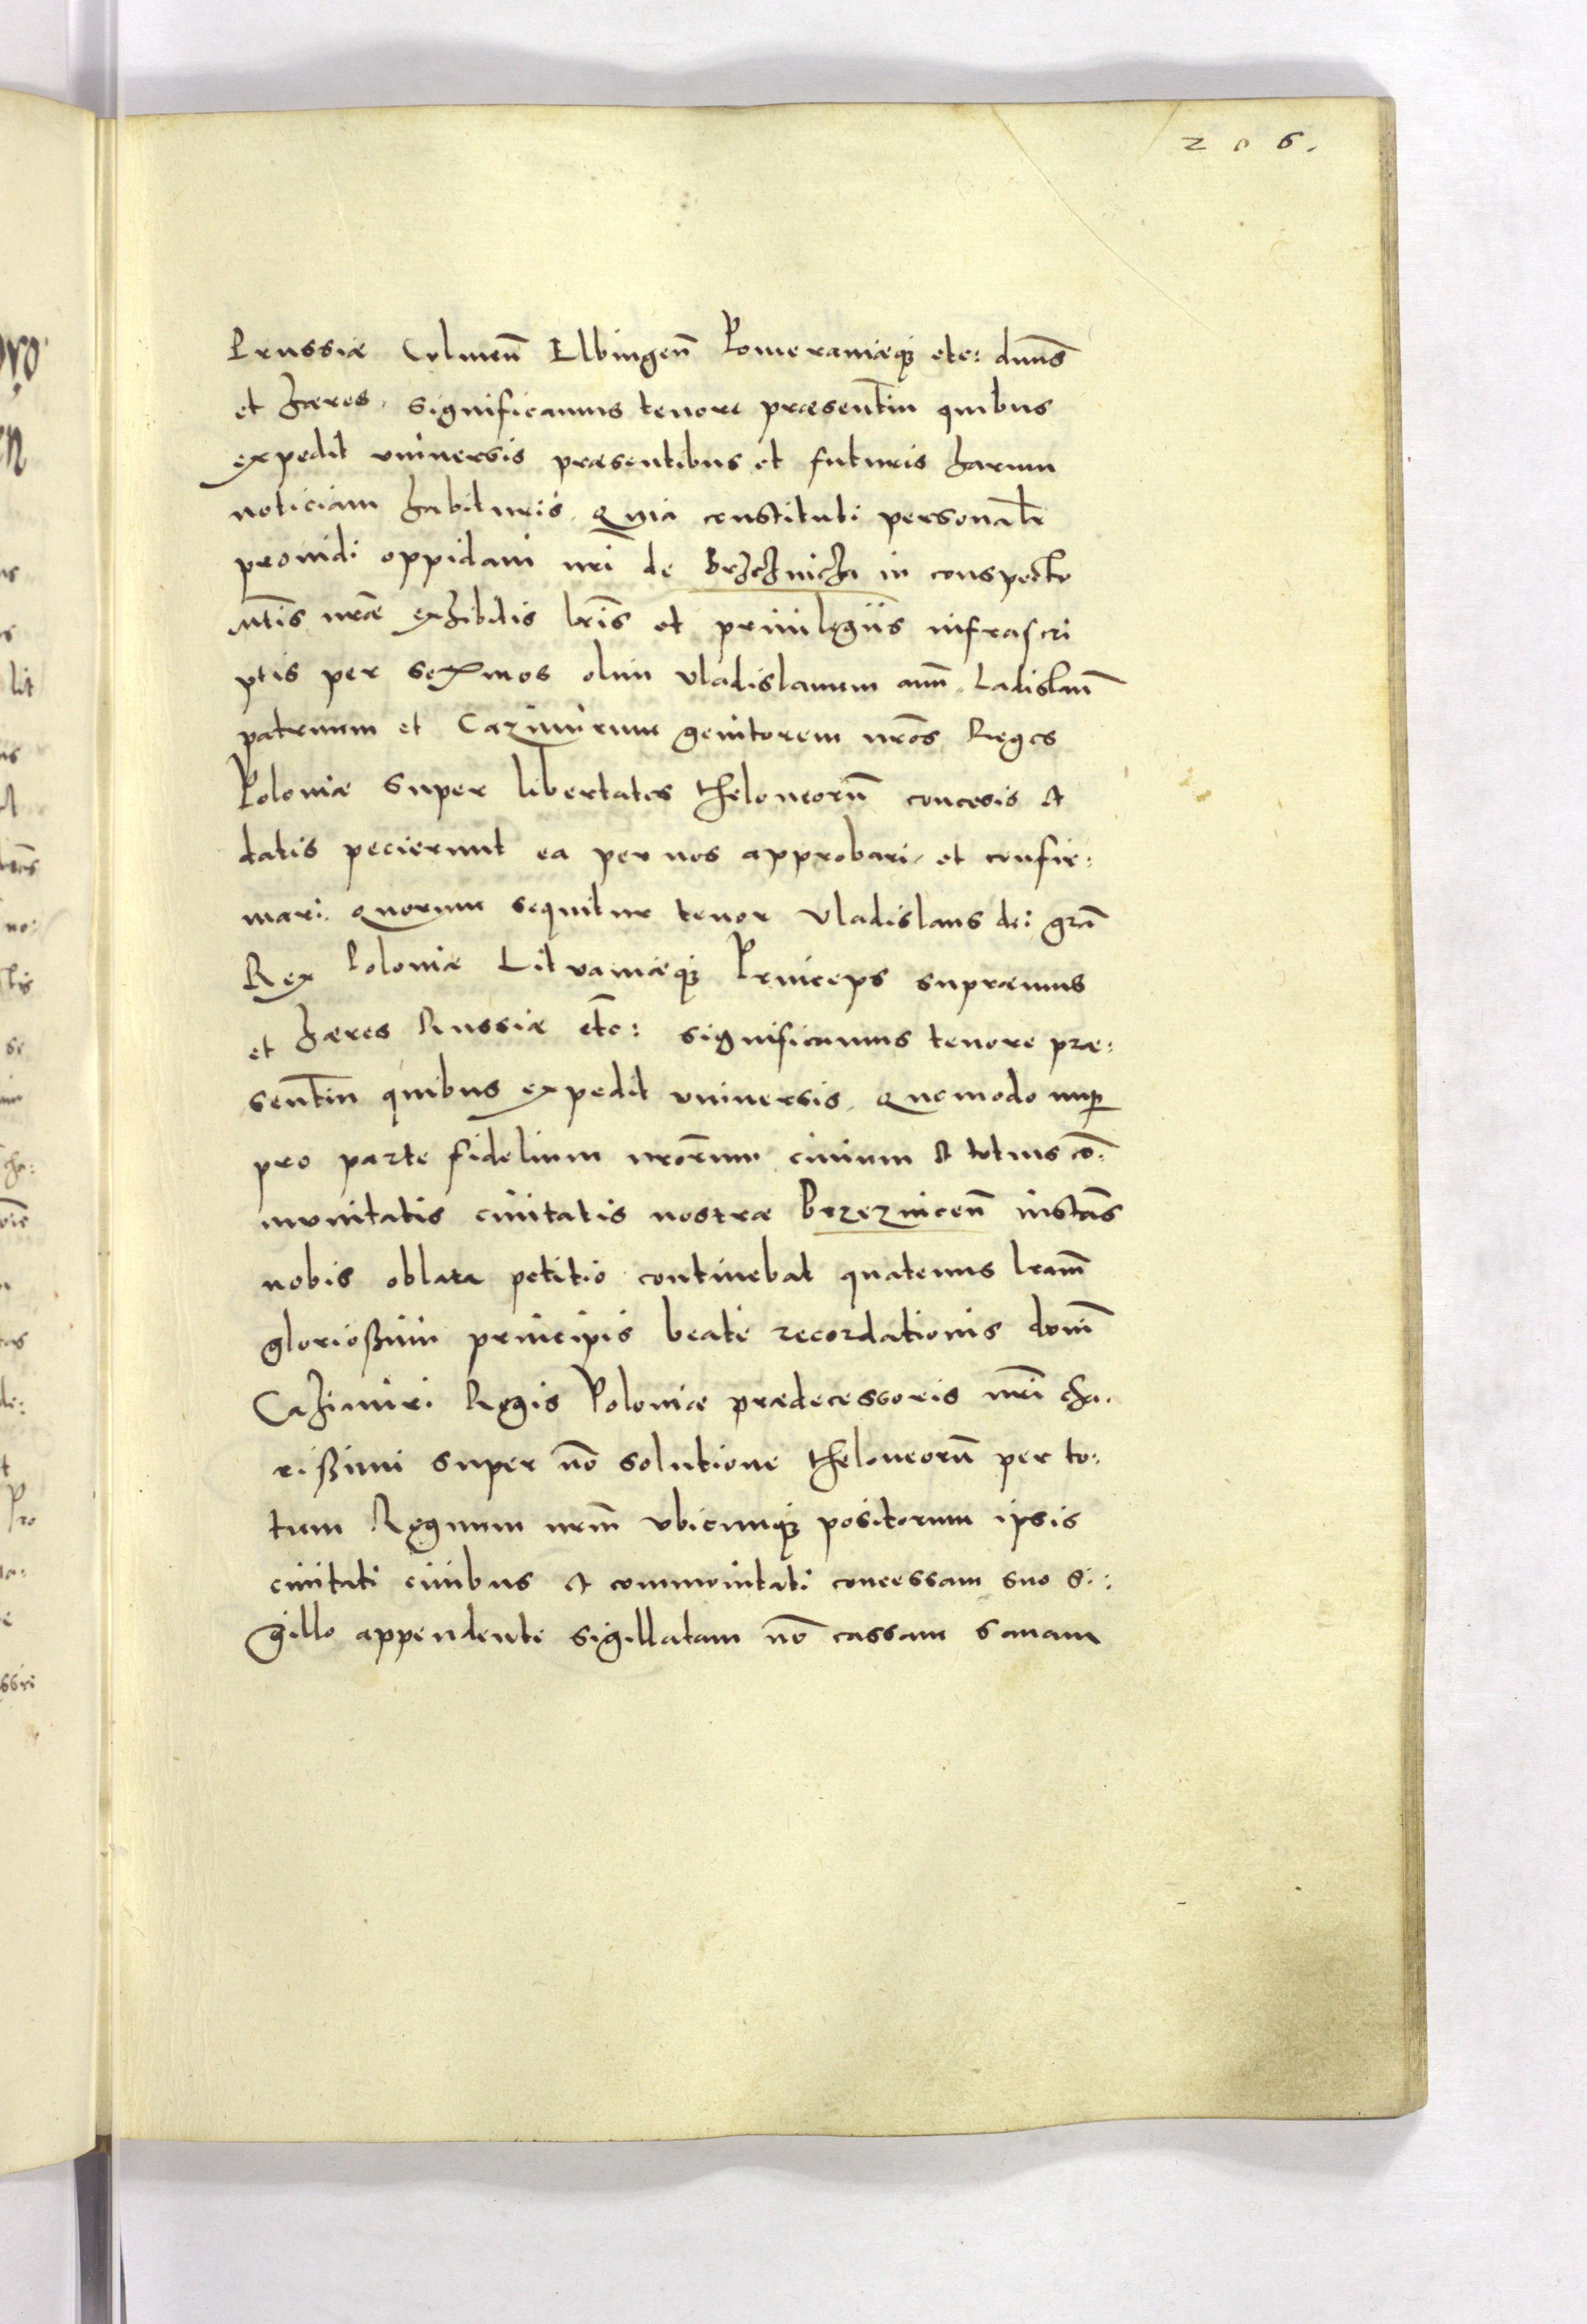 206.
Prussiæ Culmeñ Elbingeñ Pomeraniæq₃ etc: dnũs
et hæres. significamus tenore præsentiũ quibus
expedit vniuersis præsentibus et futuris harum
noticiam habituris. Quia constituti personalr̃
prouidi oppidani nr̃i de Brzeznicza in conspectu
Mtĩs nr̃æ exhibitis lr̃is et priuilegijs infrascri
ptis per Ser̃mos olim Vladislauum auũ. Ladislaũ
patruum et Cazimirum genitorem nr̃os Reges
Poloniæ super libertates theloneorũ concesis et
datis pecierunt ea per nos approbari et confir:
mari. Quorum sequitur tenor Vladislaus dei gr̃a
Rex Poloniæ Lituaniæq₃ Princeps supræmus
et hæres Russiæ etc: significamus tenore præ:
sentiũ quibus expedit vniuersis. Quomodo nup̱
pro parte fidelium nr̃orum ciuium et totius cõ:
munitatis ciuitatis nostræ Brzezniceñ instãs
nobis oblata petitio continebat quatenus lr̃am
glorioßimi principis beate recordationis dom̃
Cazimiri Regis Poloniæ prædecessoris nr̃i cha:
rißimi super nõ solutione theloneorũ per to:
tum Regnum nr̃m vbicumq₃ positorum ipsis
ciuitati ciuibus et communitati concessam suo si:
gillo appendente sigillatam nõ cassam sanam